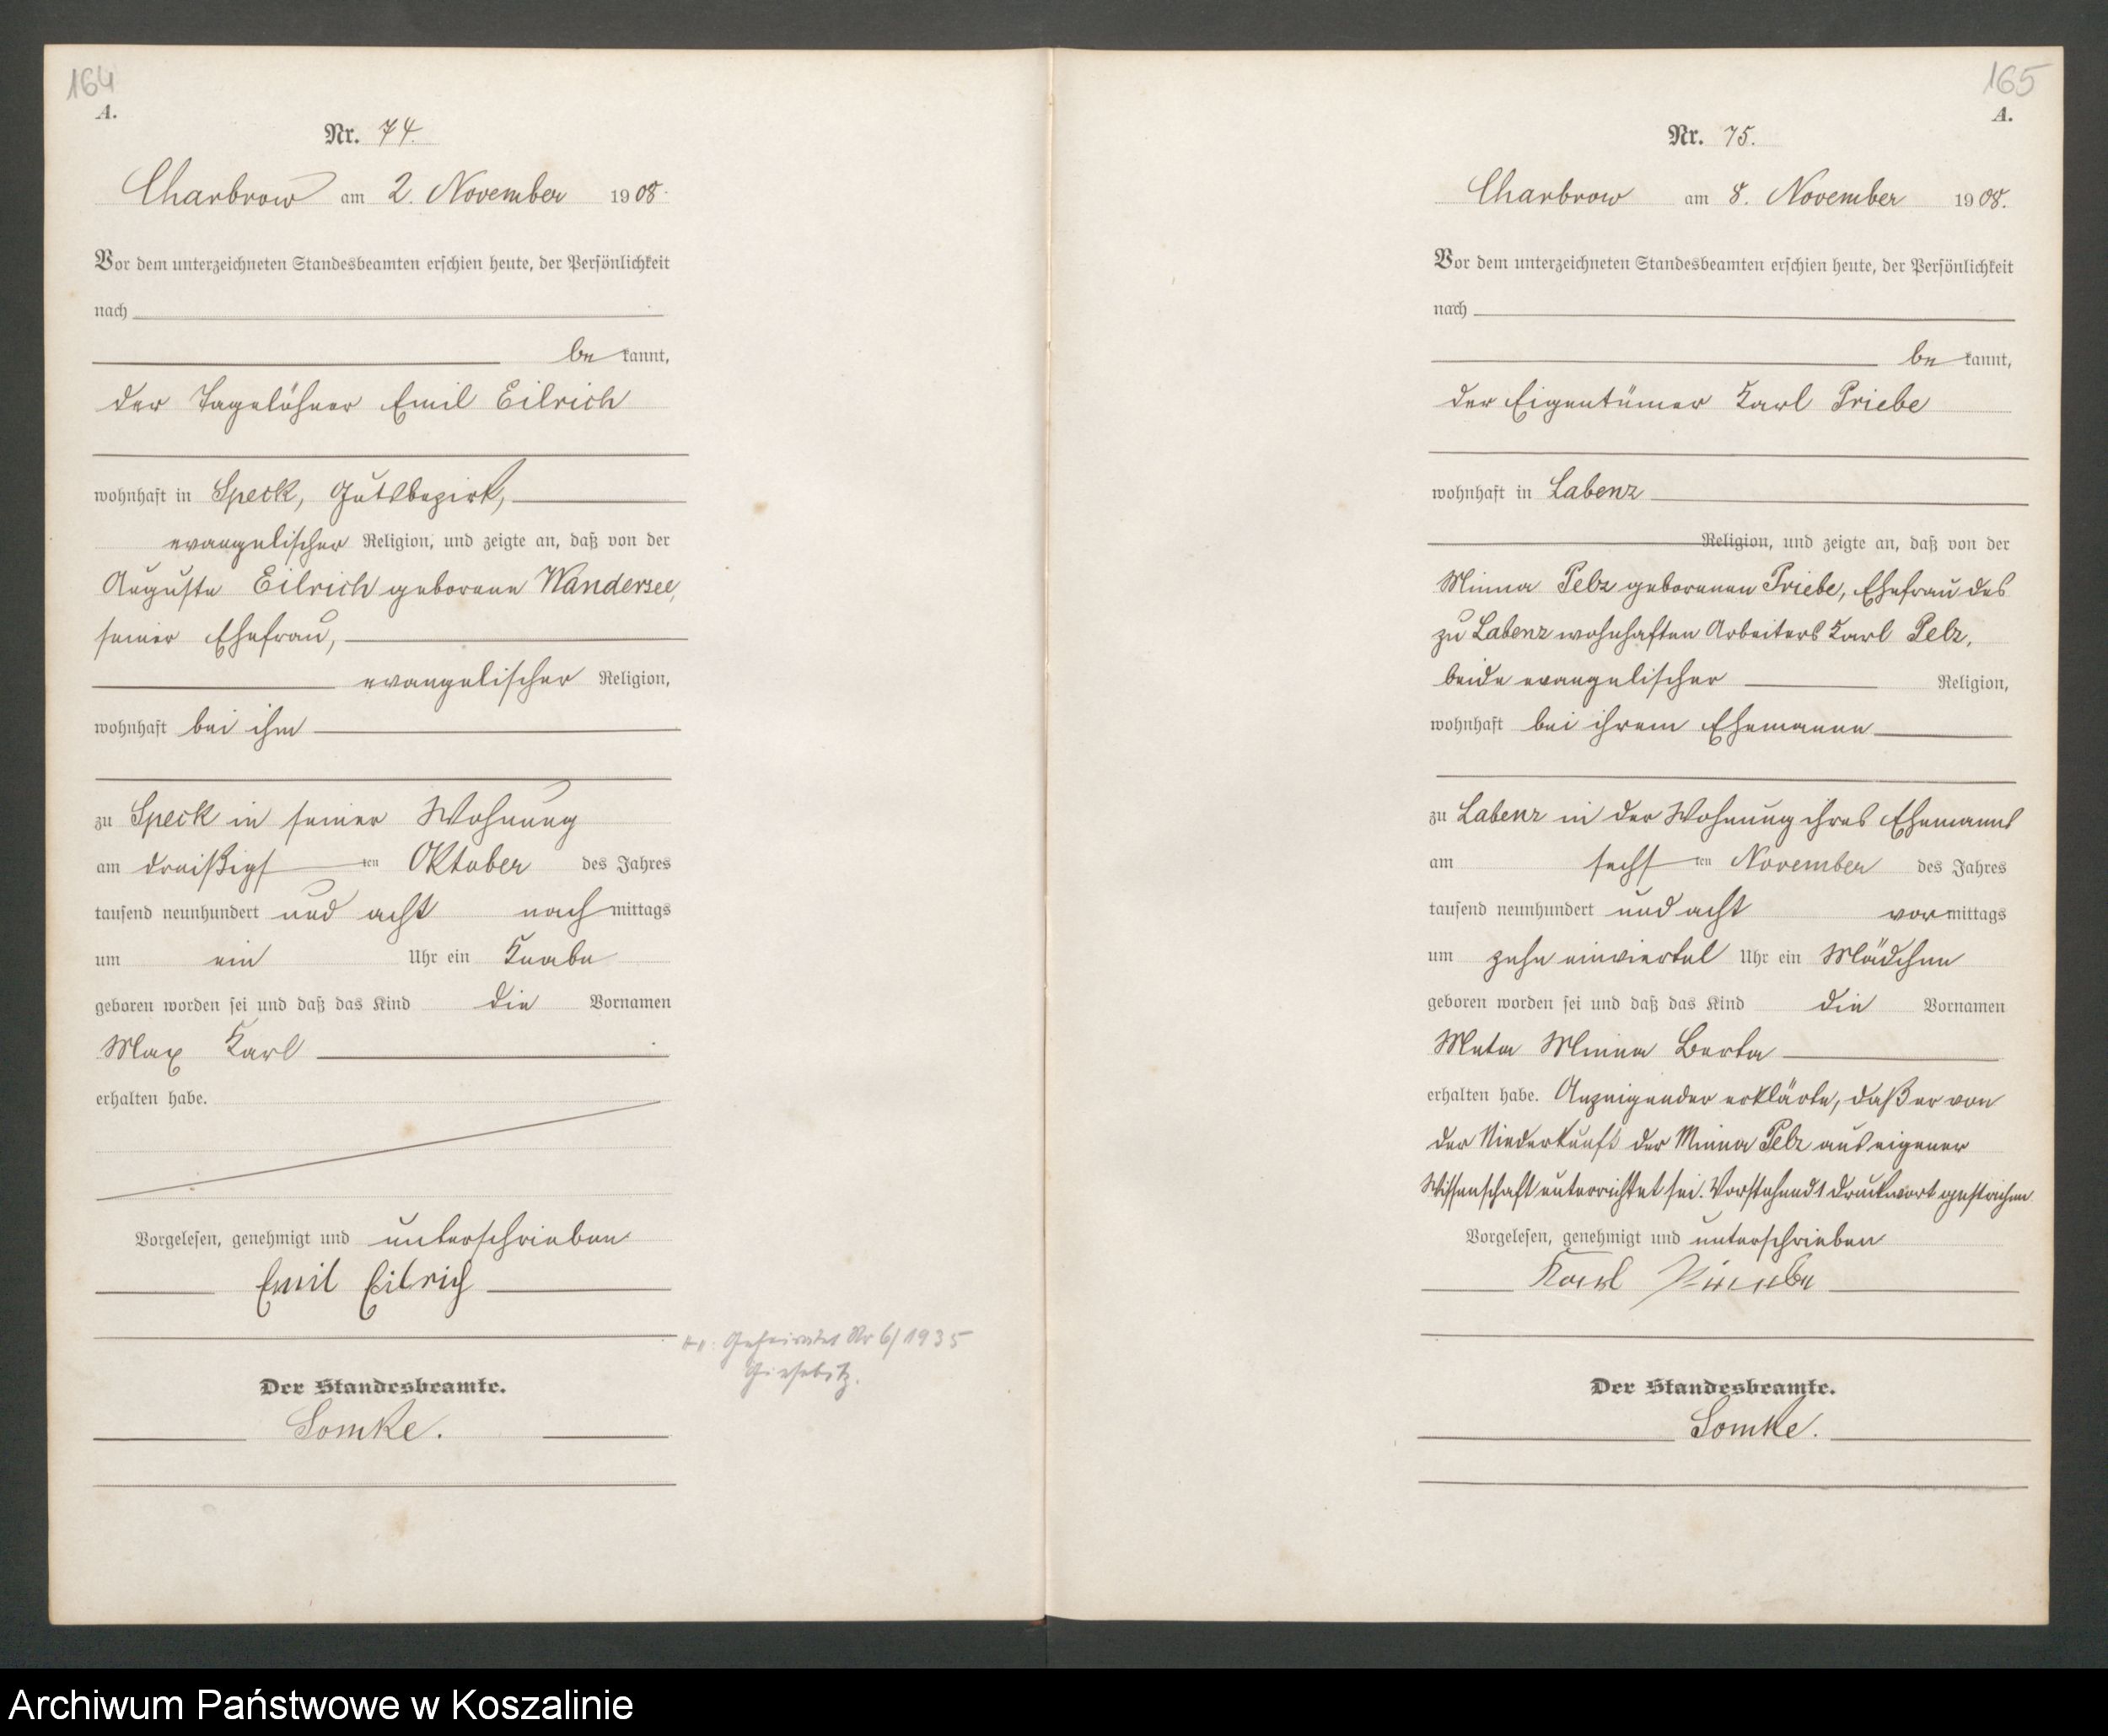 164
A.
Nr. 74.
Charbrow am 2. November 1908.
Vor dem unterzeichneten Standesbeamten erschien heute, der Persönlichkeit
nach
be kannt,
der Tagelöhner Emil Eilrich
wohnhaft in Speck, Gutsbezirk,
evangelischer Religion, und zeigte an, daß von der
Auguste Eilrich geborene Wandersee,
seiner Ehefrau,
evangelischer Religion,
wohnhaft bei ihm
zu Speck in seiner Wohnung
am dreißigsten Oktober des Jahres
tausend neunhundert und acht nachmittags
um ein Uhr ein Knabe
geboren worden sei und daß das Kind die Vornamen
Max Karl
erhalten habe.
Vorgelesen, genehmigt und unterschrieben
Emil Eilrich
Geheiratet Nr 6/1935
Giesebitz.
Der Standesbeamte.
Lomke.
165
A.
Nr. 75.
Charbrow am 8. November 1908.
Vor dem unterzeichneten Standesbeamten erschien heute, der Persönlichkeit
nach
be kannt,
der Eigentümer Karl Priebe
wohnhaft in Labenz
Religion, und zeigte an, daß von der
Minna Pelz geborenen Priebe, Ehefrau des
zu Labenz wohnhaften Arbeiters Karl Pelz,
beide evangelischer Religion,
wohnhaft bei ihrem Ehemanne
zu Labenz in der Wohnung ihres Ehemanns
am sechsten November des Jahres
tausend neunhundert und acht vormittags
um zehn einviertel Uhr ein Mädchen
geboren worden sei und daß das Kind die Vornamen
Meta Minna Berta
erhalten habe. Anzeigender erklärte, daß er von
der Niederkunft der Minna Pelz aus eigener
Wissenschaft unterrichtet sei. Vorstehend 1 Druckwort gestrichen.
Vorgelesen, genehmigt und unterschrieben
Karl Priebe
Der Standesbeamte.
Lomke.
Archiwum Państwowe w Koszalinie